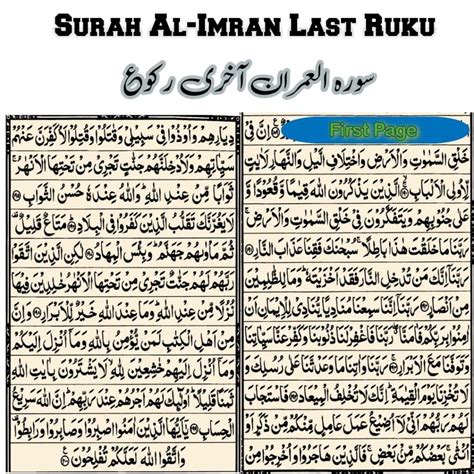 Surah Al-Imran Last Ruku
سورہ العمران آخری رکوع
First Page
اِنَّ فِیْ
خَلْقِ السَّمٰوٰتِ وَالْاَرْضِ وَاخْتِلَافِ الَّیْلِ وَالنَّهَارِ لَاٰیٰتٍ
لِّاُولِی الْاَلْبَابِ الَّذِیْنَ یَذْكُرُوْنَ اللّٰهَ قِیٰمًا وَّقُعُوْدًا وَّ
عَلٰى جُنُوْبِهِمْ وَیَتَفَكَّرُوْنَ فِیْ خَلْقِ السَّمٰوٰتِ وَالْاَرْضِ
رَبَّنَا مَا خَلَقْتَ هٰذَا بَاطِلًا سُبْحٰنَكَ فَقِنَا عَذَابَ النَّارِ
رَبَّنَاۤ اِنَّكَ مَنْ تُدْخِلِ النَّارَ فَقَدْ اَخْزَیْتَهٗ وَمَا لِلظّٰلِمِیْنَ
مِنْ اَنْصَارٍ رَبَّنَاۤ اِنَّنَا سَمِعْنَا مُنَادِیًا یُّنَادِیْ لِلْاِیْمَانِ اَنْ
اٰمِنُوْا بِرَبِّكُمْ فَاٰمَنَّا رَبَّنَا فَاغْفِرْ لَنَا ذُنُوْبَنَا وَكَفِّرْ عَنَّا سَیِّاٰتِنَا
وَتَوَفَّنَا مَعَ الْاَبْرَارِ رَبَّنَا وَاٰتِنَا مَا وَعَدْتَّنَا عَلٰى رُسُلِكَ وَ
لَا تُخْزِنَا یَوْمَ الْقِیٰمَةِ اِنَّكَ لَا تُخْلِفُ الْمِیْعَادَ فَاسْتَجَابَ
لَهُمْ رَبُّهُمْ اَنِّیْ لَاۤ اُضِیْعُ عَمَلَ عَامِلٍ مِّنْكُمْ مِّنْ ذَكَرٍ اَوْ
اُنْثٰى بَعْضُكُمْ مِّنْۢ بَعْضٍ فَالَّذِیْنَ هَاجَرُوْا وَاُخْرِجُوْا مِنْ
دِیَارِهِمْ وَاُوْذُوْا فِیْ سَبِیْلِیْ وَقٰتَلُوْا وَقُتِلُوْا لَاُكَفِّرَنَّ عَنْهُمْ
سَیِّاٰتِهِمْ وَلَاُدْخِلَنَّهُمْ جَنّٰتٍ تَجْرِیْ مِنْ تَحْتِهَا الْاَنْهٰرُ
ثَوَابًا مِّنْ عِنْدِ اللّٰهِ وَاللّٰهُ عِنْدَهٗ حُسْنُ الثَّوَابِ
لَا یَغُرَّنَّكَ تَقَلُّبُ الَّذِیْنَ كَفَرُوْا فِی الْبِلَادِ مَتَاعٌ قَلِیْلٌ
ثُمَّ مَاْوٰىهُمْ جَهَنَّمُ وَبِئْسَ الْمِهَادُ لٰكِنِ الَّذِیْنَ اتَّقَوْا
رَبَّهُمْ لَهُمْ جَنّٰتٌ تَجْرِیْ مِنْ تَحْتِهَا الْاَنْهٰرُ خٰلِدِیْنَ فِیْهَا
نُزُلًا مِّنْ عِنْدِ اللّٰهِ وَمَا عِنْدَ اللّٰهِ خَیْرٌ لِّلْاَبْرَارِ وَاِنَّ
مِنْ اَهْلِ الْكِتٰبِ لَمَنْ یُّؤْمِنُ بِاللّٰهِ وَمَاۤ اُنْزِلَ اِلَیْكُمْ
وَمَاۤ اُنْزِلَ اِلَیْهِمْ خٰشِعِیْنَ لِلّٰهِ لَا یَشْتَرُوْنَ بِاٰیٰتِ اللّٰهِ
ثَمَنًا قَلِیْلًا اُولٰٓىِٕكَ لَهُمْ اَجْرُهُمْ عِنْدَ رَبِّهِمْ اِنَّ اللّٰهَ سَرِیْعُ
الْحِسَابِ یٰۤاَیُّهَا الَّذِیْنَ اٰمَنُوا اصْبِرُوْا وَصَابِرُوْا وَرَابِطُوْا
وَاتَّقُوا اللّٰهَ لَعَلَّكُمْ تُفْلِحُوْنَ